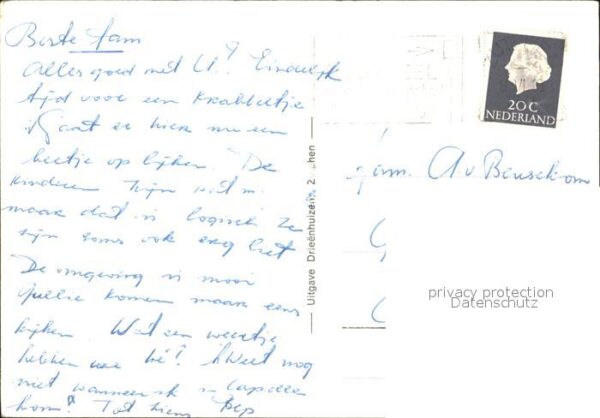 Beste fam
Alles goed met U? Eindelijk
tijd voor een krabbeltje
Gaat er hier nu een
beetje op lijken. De
kinderen zijn wat
maar dat is logisch Ze
zijn soms ook erg lief
De omgeving is mooi
jullie komen maar eens
kijken. Wat een weertje
hebben we hè? Weet nog
niet wanneer ik in Capelle
kom? Tot ziens Bep
Uitgave Drieënhuizen, Z
20 C
NEDERLAND
Fam. A v Beusekom
privacy protection
Datenschutz